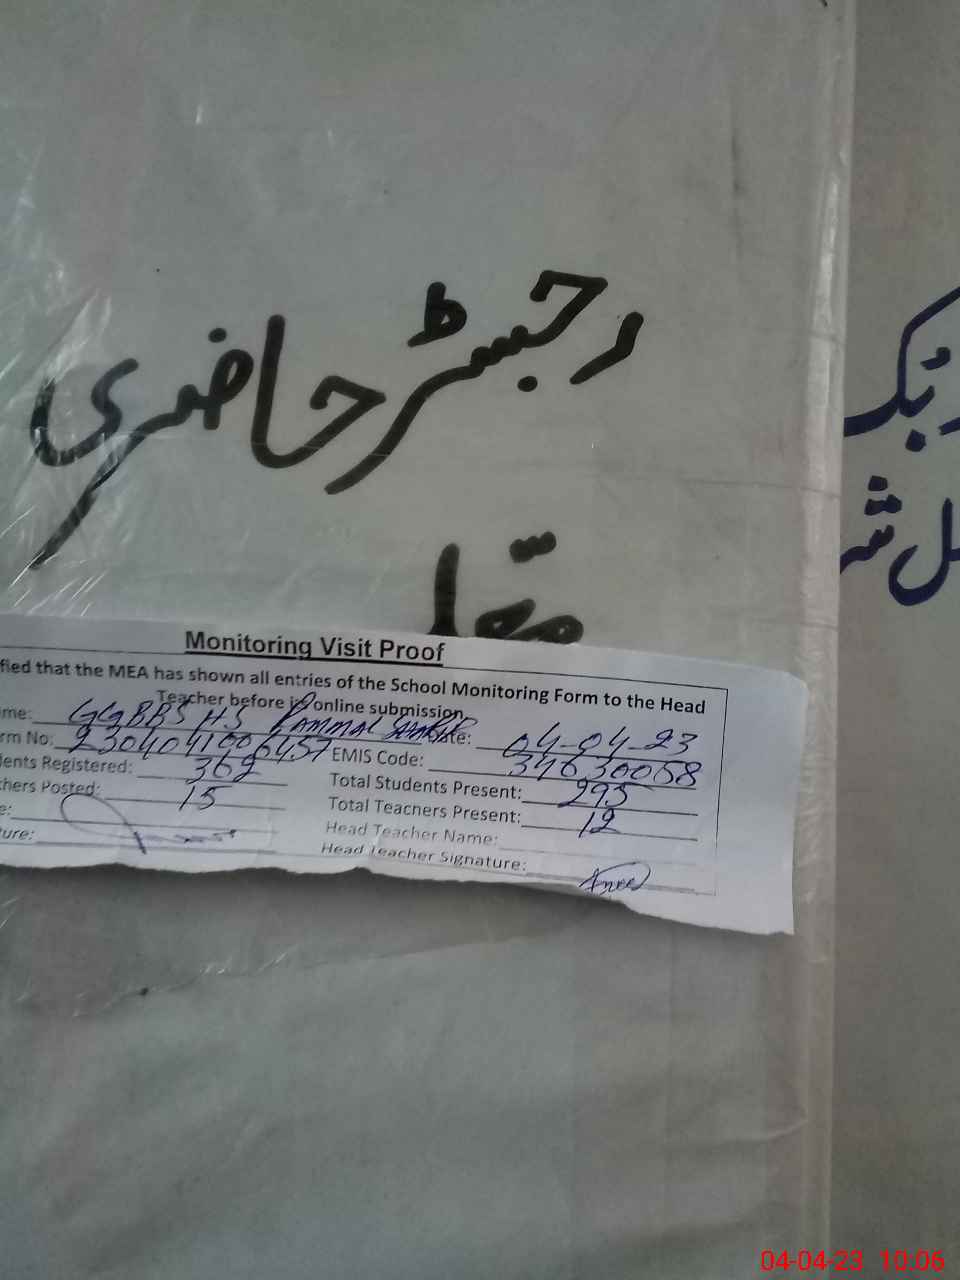 رجسٹر حاضری
Monitoring Visit Proof
fied that the MEA has shown all entries of the School Monitoring Form to the Head
Teacher before online submission
me: GGBBS H.S Pammal
ate: 04-04-23
rm No: 2304041006457
EMIS Code: 34630058
ents Registered: 362
Total Students Present: 295
hers Posted: 15
Total Teachers Present: 12
e:
Head Teacher Name:
ure:
Head Teacher Signature:
04-04-23 10:06